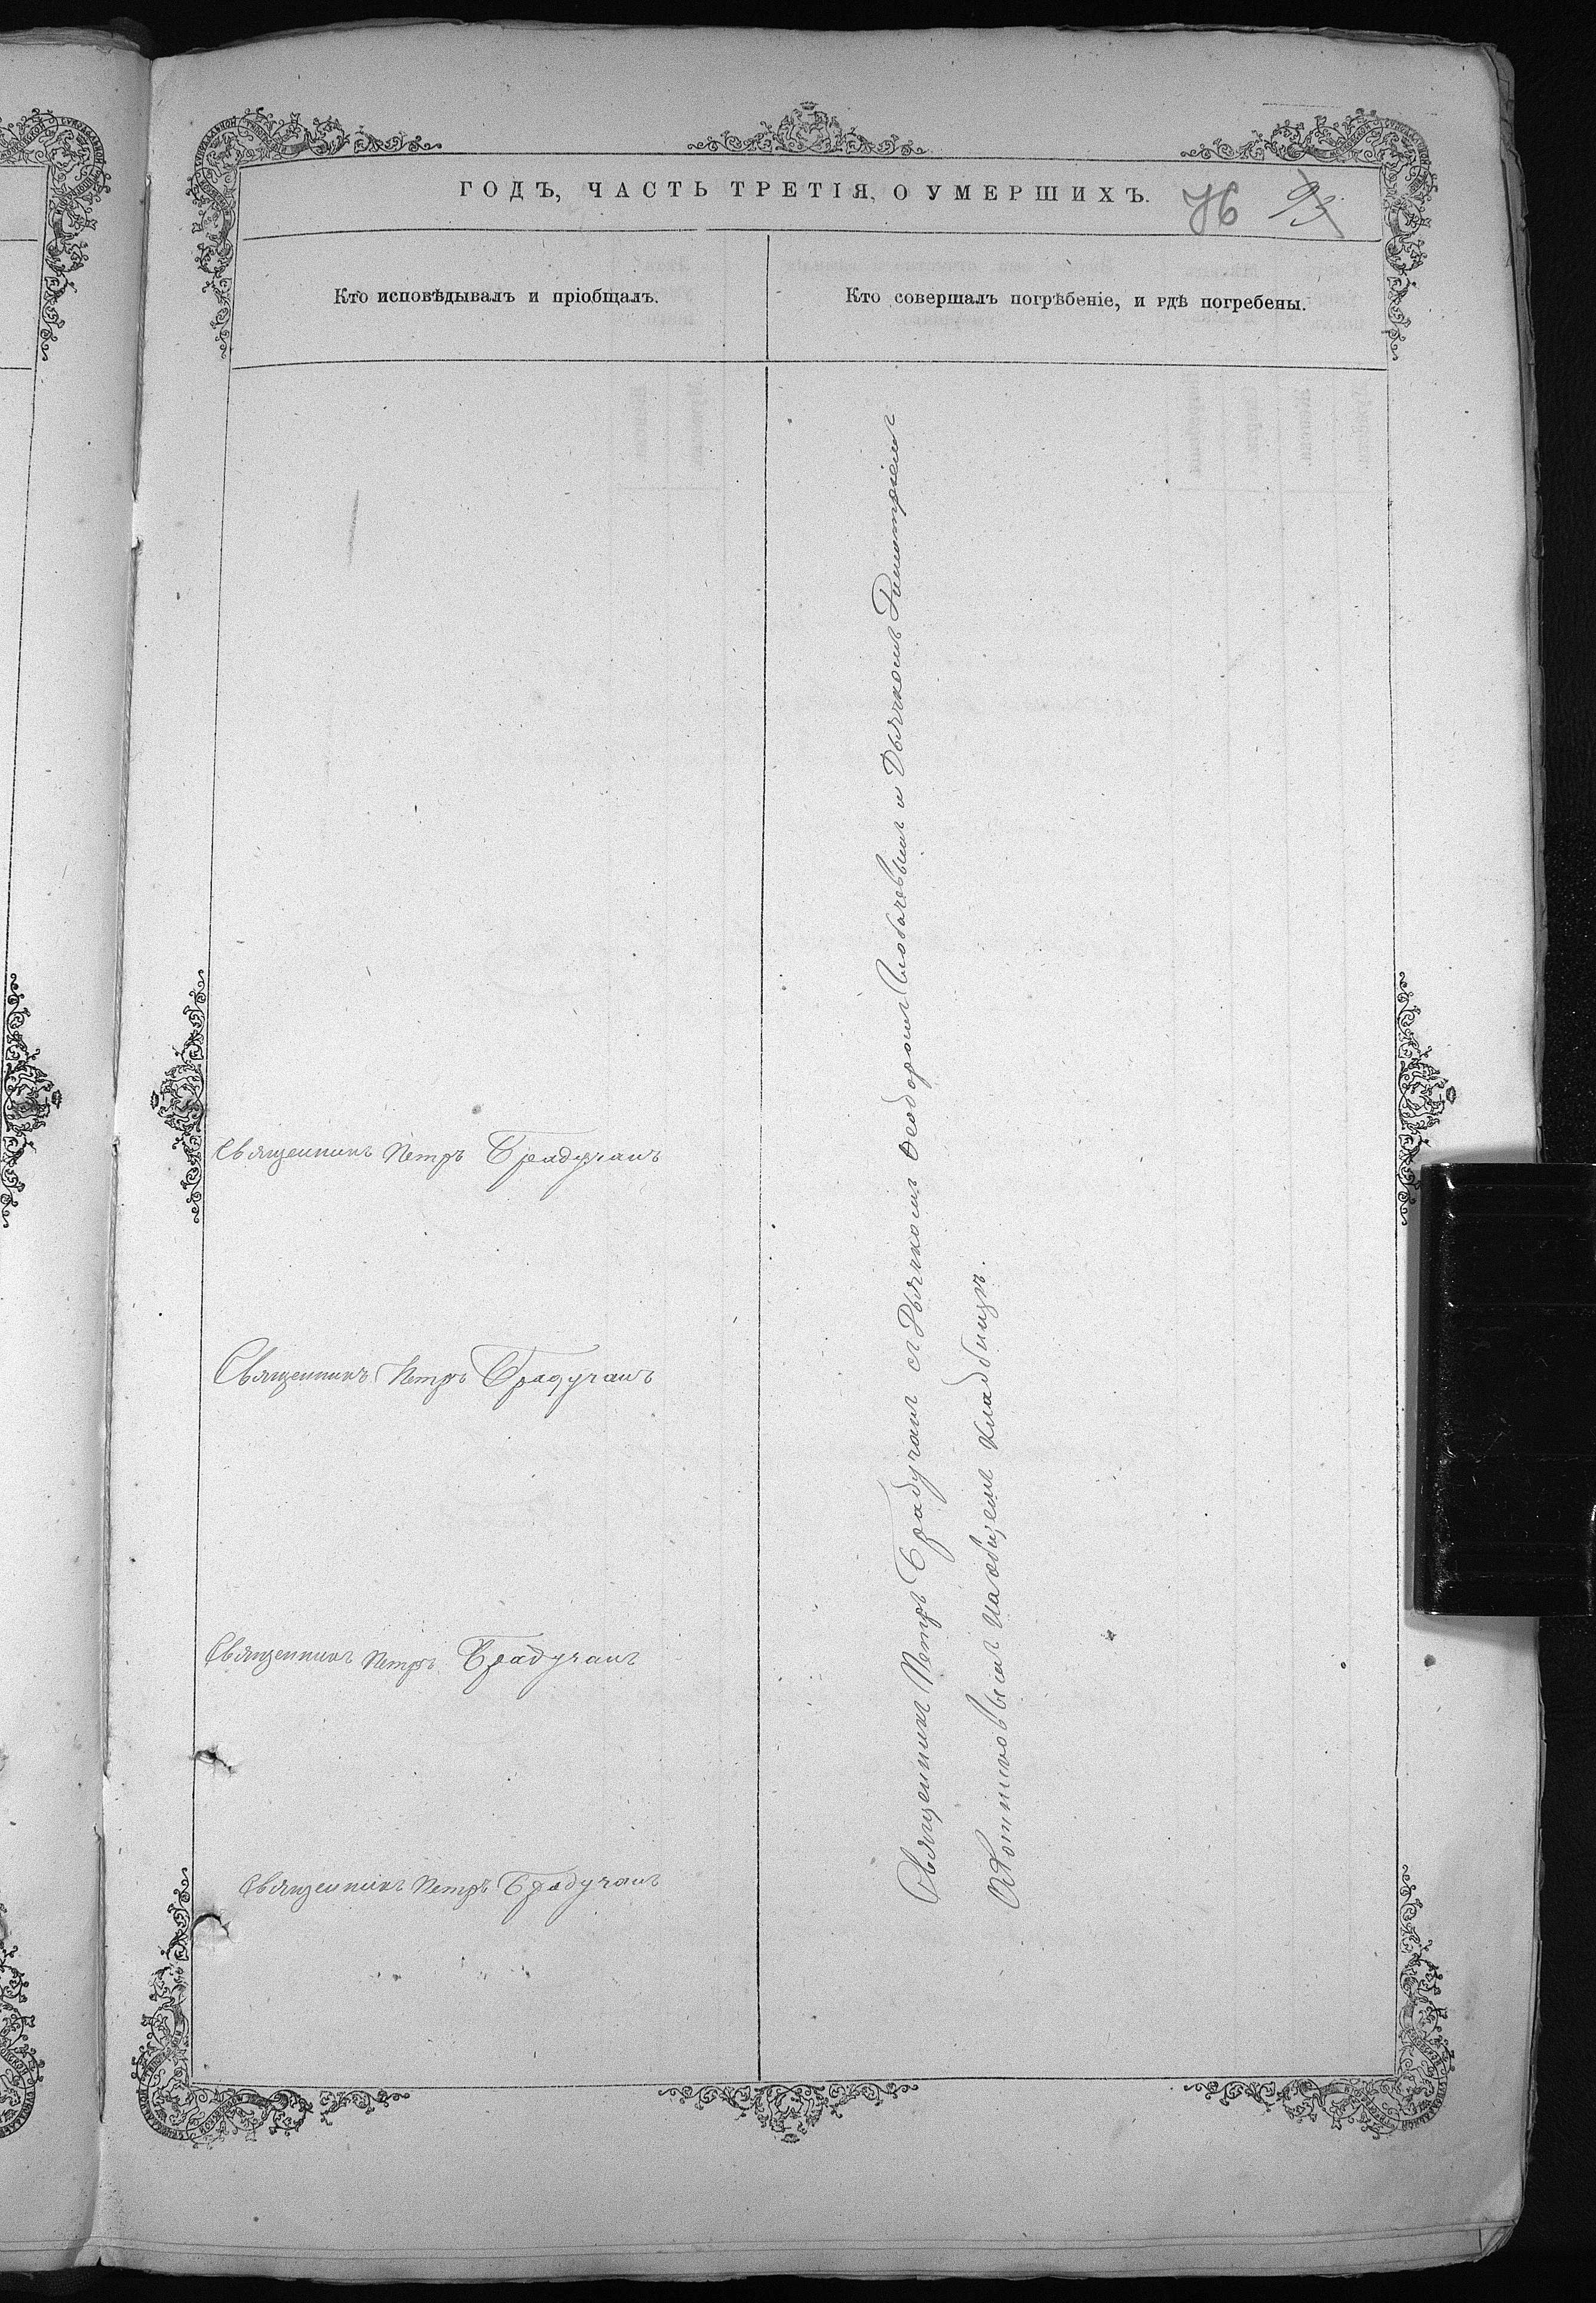 ГОДЪ, ЧАСТЬ ТРЕТІЯ, О УМЕРШИХЪ.
76 93
Кто исповѣдывалъ и пріобщалъ.
Кто совершалъ погрѣбеніе, и гдѣ погребены.
Священникъ Петръ Брадучанъ
Священникъ Петръ Брадучанъ
Священникъ Петръ Брадучанъ
Священникъ Петръ Брадучанъ
Священникъ Петръ Брадучанъ съ Дьячкомъ Ѳеодоромъ и Дьячкомъ Димитріемъ
на общемъ кладбищѣ.